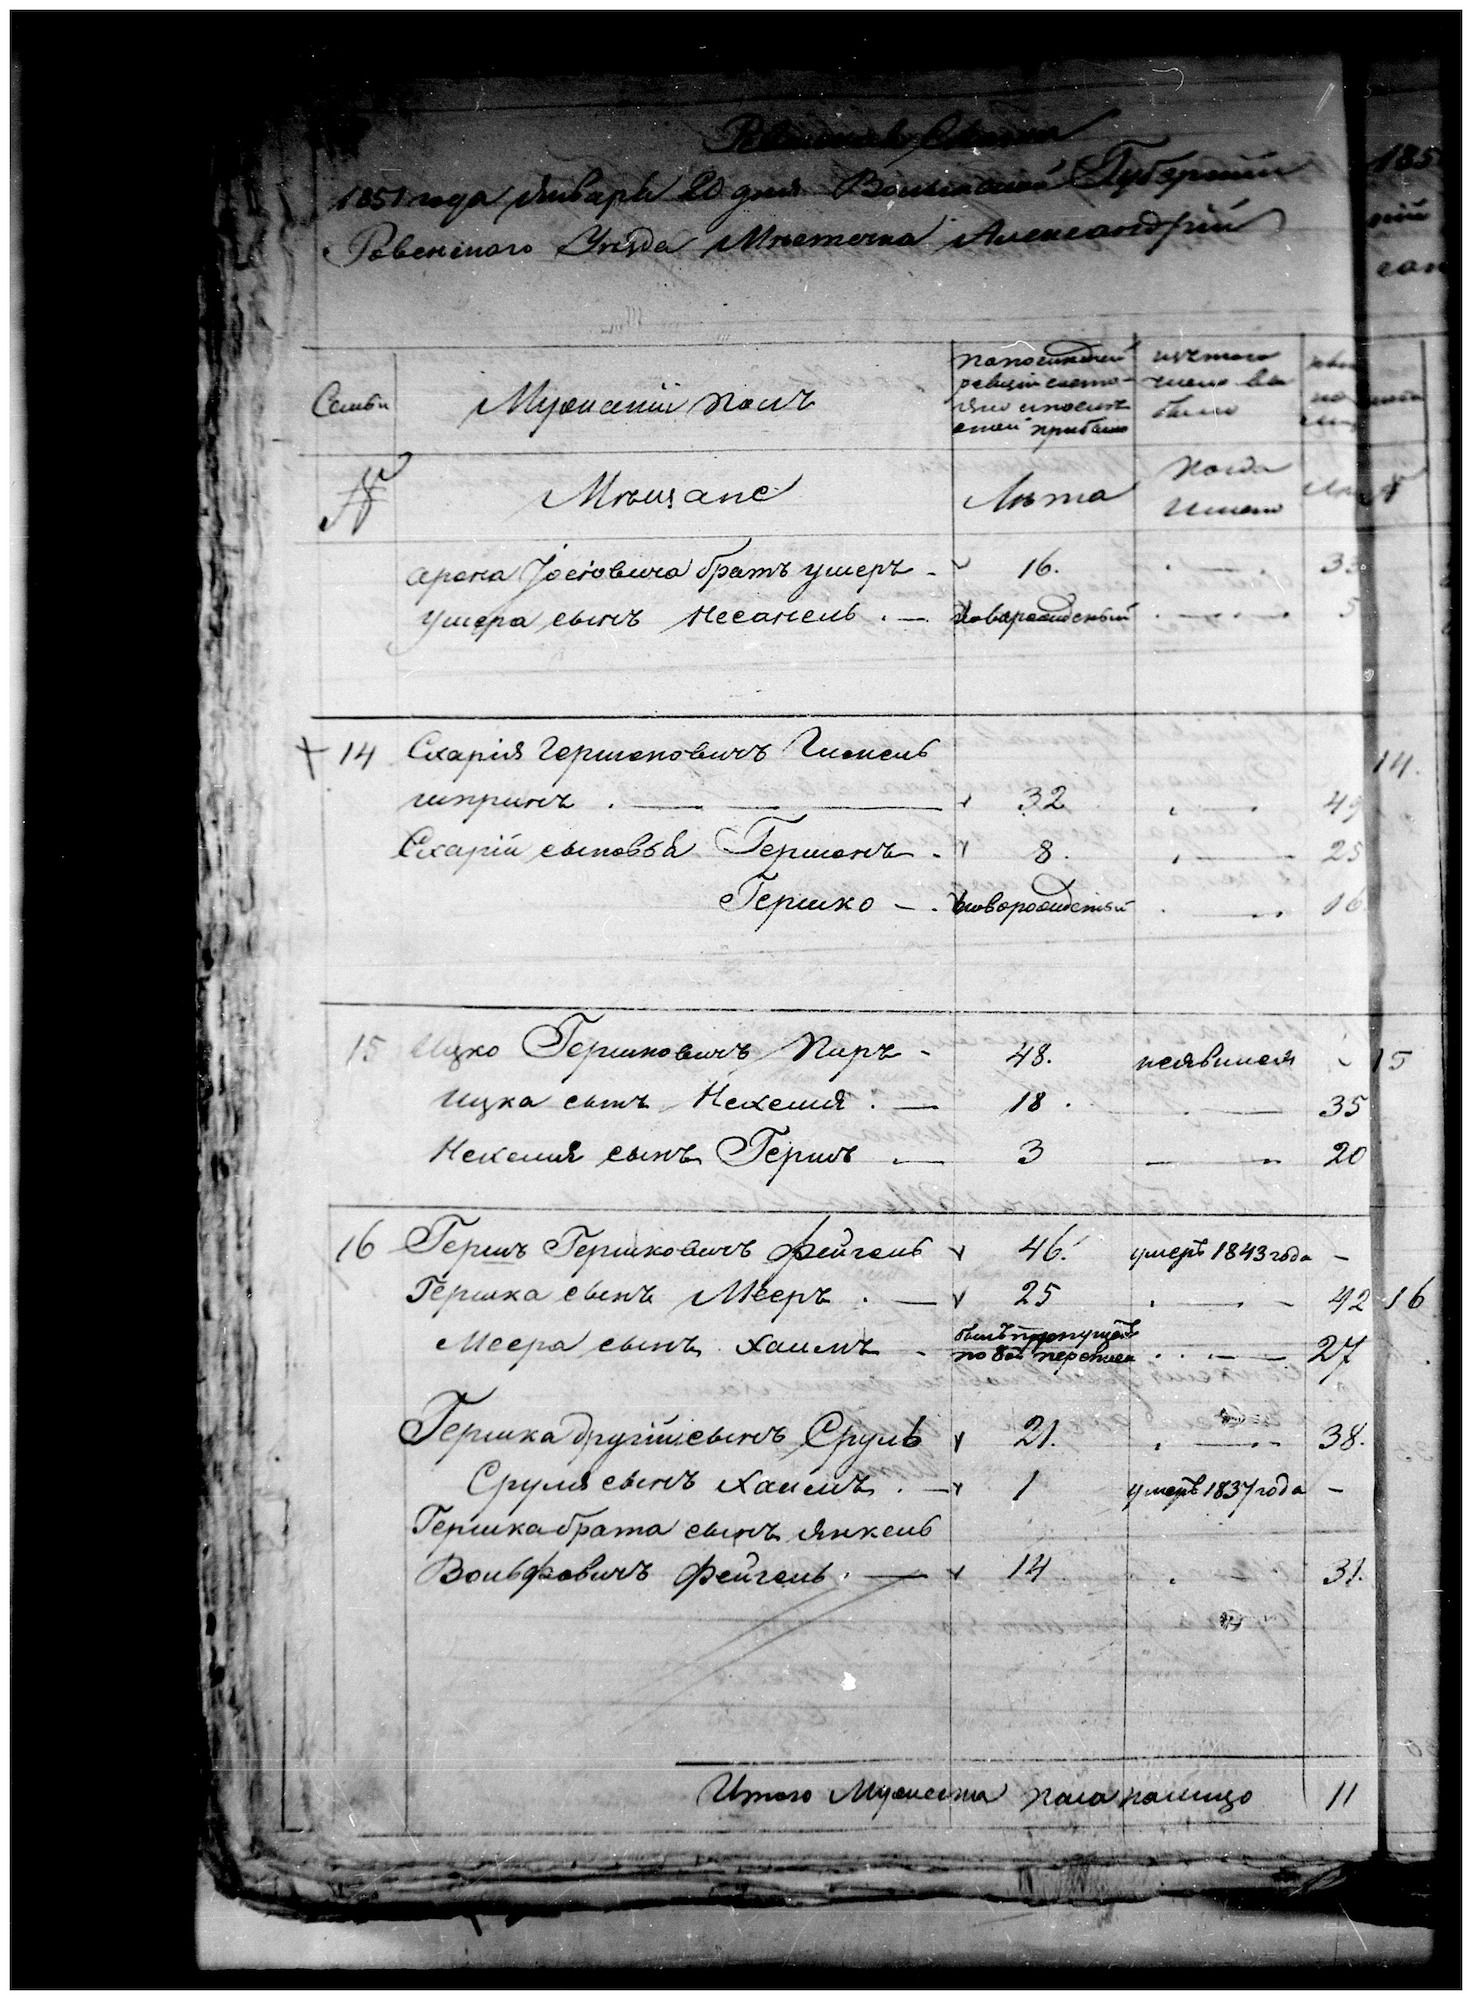 Ревизская Сказка
1851 года Января 20 дня Волынской Губернии
Ровенского Уезда Местечка Александрии
Семьи
Мужеский полъ
По последней ревизии состояло и после етой прибыло
изъ того числа выбыло
№
Мещане
Лета
Когда именно
Арона Іосіовича братъ Ушеръ - 16. 33
Ушера сынъ Несанель . — новорожденный 5
14 Схарія Гершоновичъ
шпринъ . — 32 49
Схарiи сыновья Гершонъ - 8. 25
Гершко - . новорожденный 16
15 Ицко Гершковичъ Пиръ - 48. неявился
Ицка сынъ Нехемия . — 18 . 35
Нехемия сынъ Гершъ — 3 20
16 Гершъ Гершковичъ Фейгель 46. умеръ 1843 года -
Гершка сынъ Мееръ . — 25 42
Меера сынъ Хаимъ - былъ пропущен по 8й переписи 27
Гершка другiй сынъ Сруль 21. 38.
Сруля сынъ Хаимъ . — 1 умеръ 1837 года -
Гершка брата сынъ Янкель
Вольфовичъ Фейгель . — 14 31.
Итого Мужеска пола налицо 11
185
14.
15
16